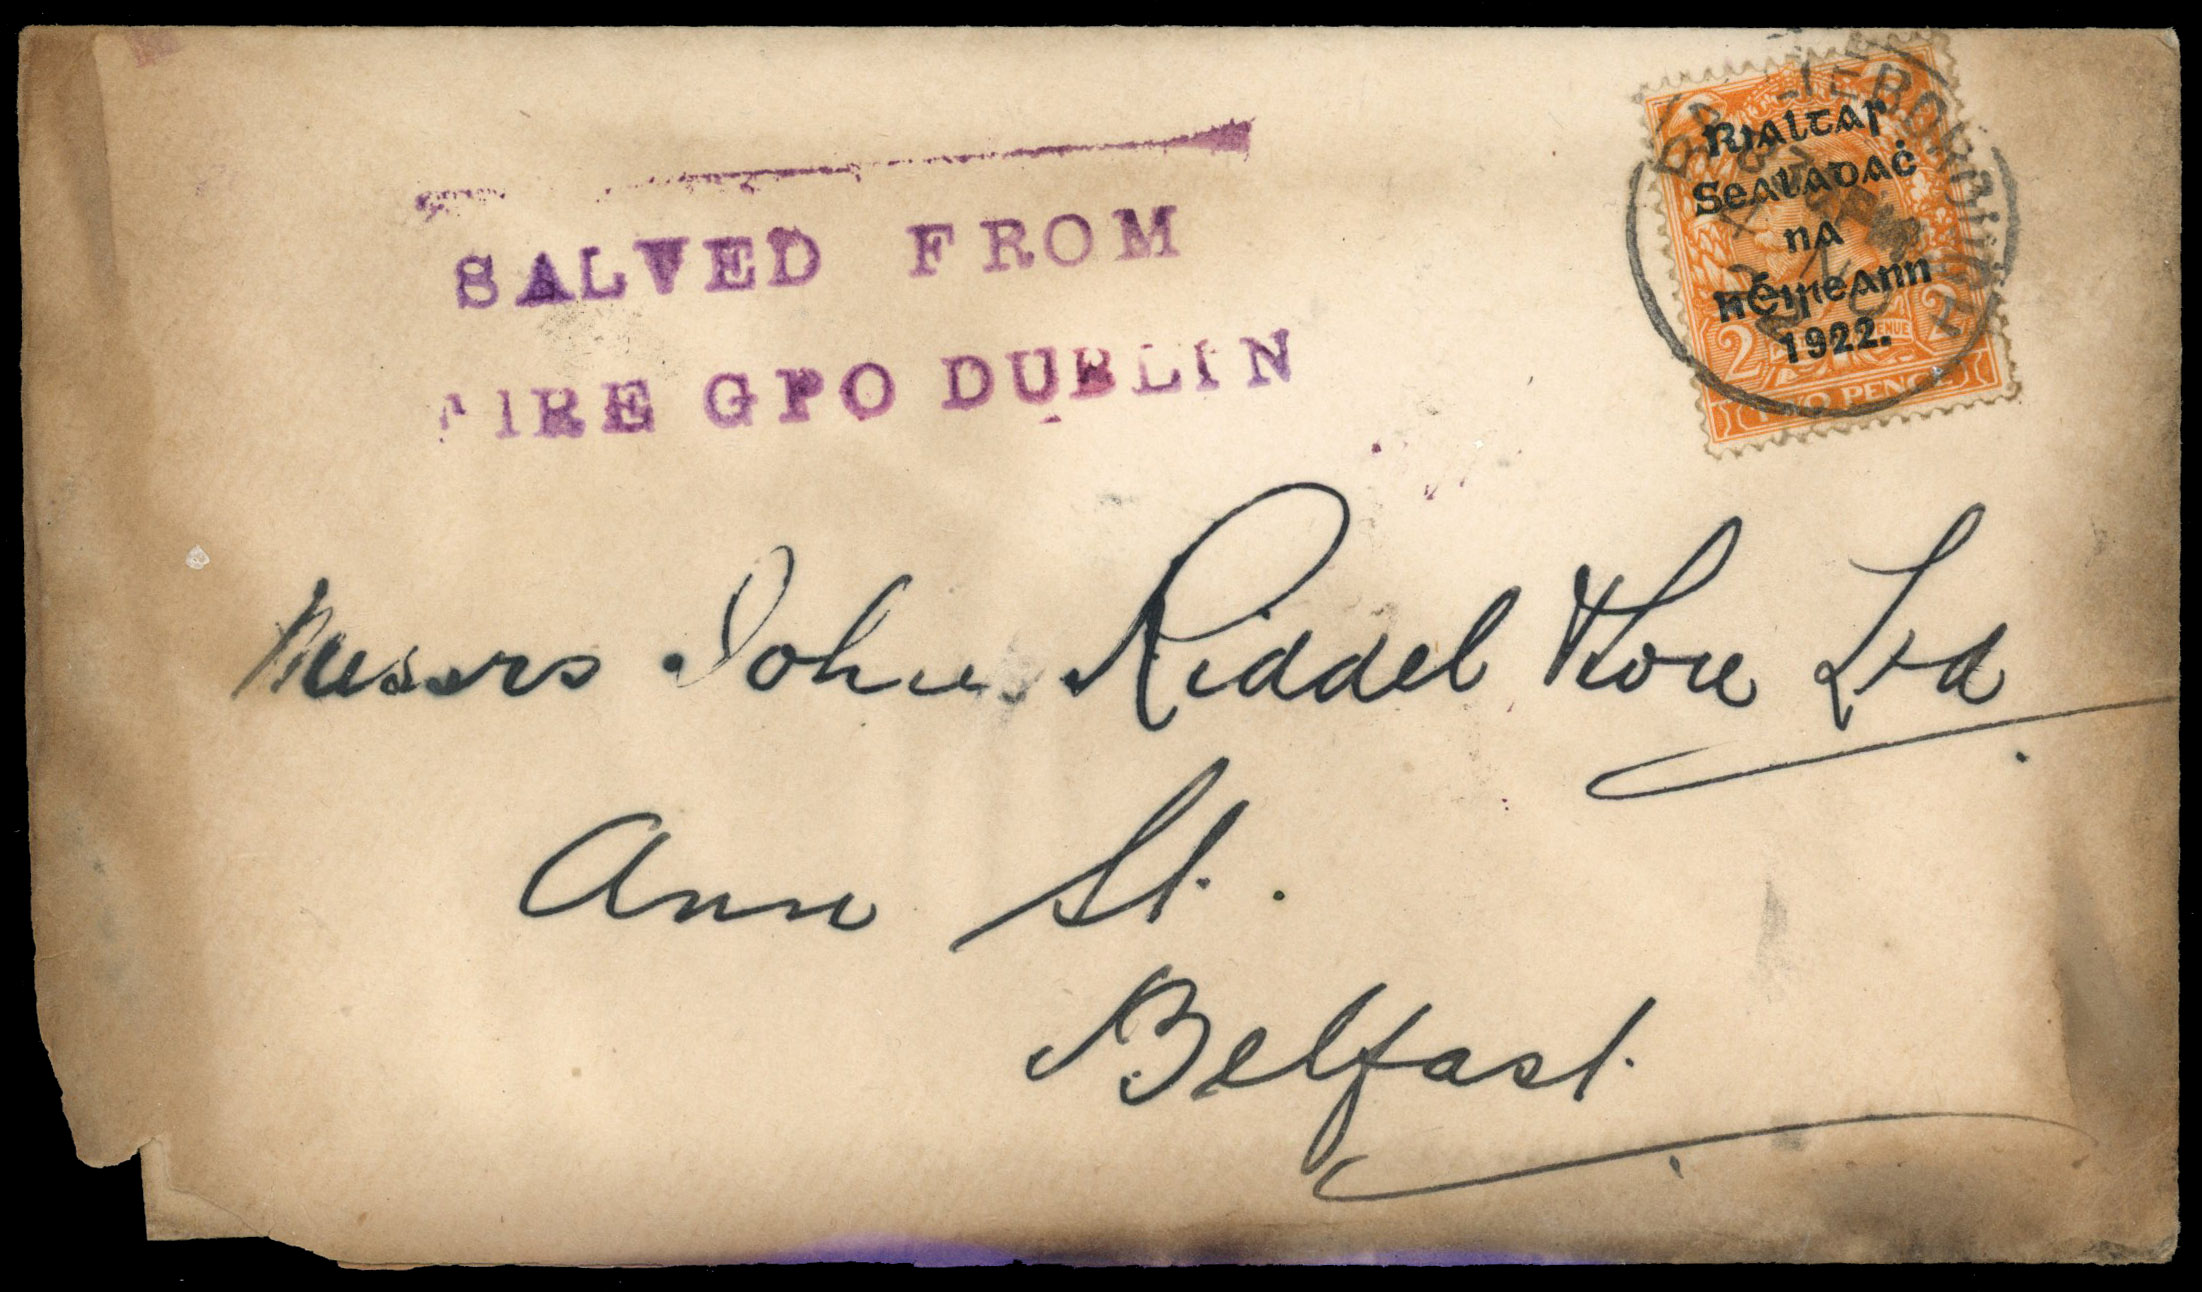 SALVED FROM
FIRE GPO DUBLIN
Rialtas
Sealadaċ
na
hÉireann
1922.
2 2
TWO PENCE
Messrs John Riddel & Co Ltd
Ann St.
Belfast.